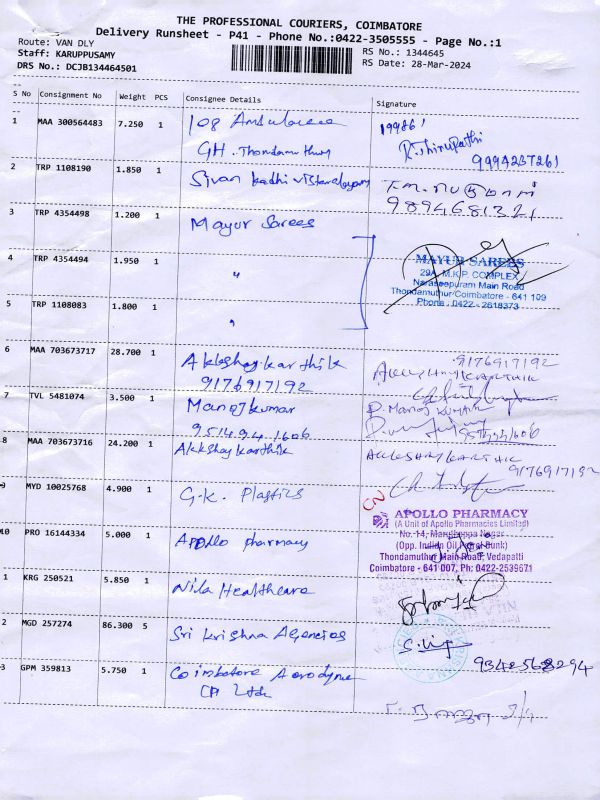 THE PROFESSIONAL COURIERS, COIMBATORE
Delivery Runsheet - P41 - Phone No.:0422-3505555 - Page No.:1
Route: VAN DLY
Staff: KARUPPUSAMY
DRS No.: DCJB134464501
RS No.: 1344645
RS Date: 28-Mar-2024
S No Consignment No Weight PCS Consignee Details Signature
1 MAA 300564483 7.250 1 108 Ambulance
GH. Thondamuthur
R.Thirupathi
9994257261
2 TRP 1108190 1.850 1 Sivan
9894681321
3 TRP 4354498 1.200 1 Mayur Sarees
4 TRP 4354494 1.950 1 "
MAYUR SAREES
29A, M.K.P. COMPLEX
Naraseepuram Main Road
Thondamuthur/Coimbatore - 641 109
Phone : 0422 - 2618373
5 TRP 1108083 1.800 1 "
6 MAA 703673717 28.700 1 Akkshay karthik
9176917192
9176917192
AKKSHAY KARTHIK
7 TVL 5481074 3.500 1 Manoj kumar
9514941606
D. Manoj kumar
8 MAA 703673716 24.200 1 Akkshay karthik
AKKSHAY KARTHIK
9176917192
9 MYD 10025768 4.900 1 G.K. Plastics
CN
10 PRO 16144334 5.000 1 Apollo pharmacy
APOLLO PHARMACY
(A Unit of Apollo Pharmacies Limited)
No. 14, Nagar
(Opp. Indian Oil Petrol Bunk)
Thondamuthur Main Road, Vedapatti
Coimbatore - 641 007, Ph: 0422-2539671
1 KRG 250521 5.850 1 Nila Healthcare
2 MGD 257274 86.300 5 Sri Krishna Agencies
3 GPM 359813 5.750 1 Coimbatore Aerodyne
(P) Ltd